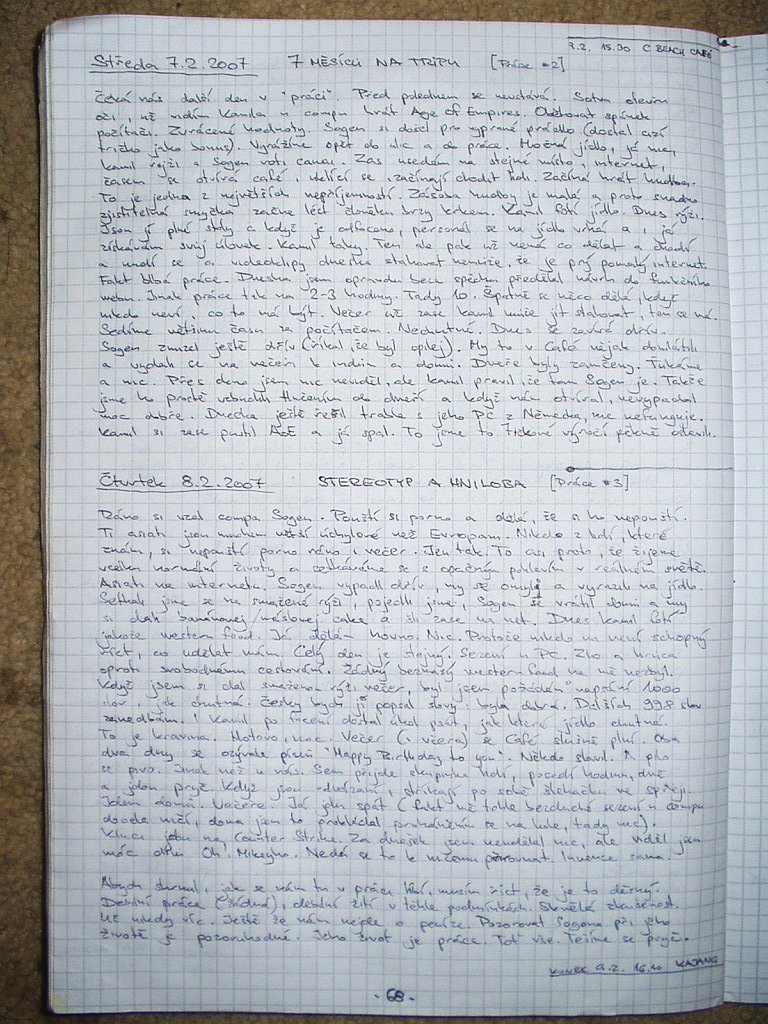 9.2. 15.30 C BEACH CAFÉ
Středa 7.2.2007 7 MĚSÍCŮ NA TRIPU [Práce #2]
Čeká nás další den v "práci". Před polednem se nevstává. Sotva otevřu
oči, už vidím Kamila u compu hrát Age of Empires. Obětovat spánek
počítači. Zvrácené hodnoty. Sogen si došel pro vyprané prádlo (dostal cizí
tričko jako bonus). Vyrážíme opět do ulic a do práce. Možná jídlo, já mee,
Kamil rýži a Sogen roti canai. Zas usedám na stejné místo, internet,
časem se otvírá café, začínají chodit lidi. Začíná hrát hudba.
To je jedna z největších nepříjemností. Zásoba hudby je malá a proto snadno
zjistitelná smyčka začne lézt člověku brzy krkem. Kamil fotí jídlo. Dnes rýži.
Jsou jí plné stoly a když je odfoceno, personál se na jídlo vrhá a i já
získávám svůj úlovek. Kamil taky. Ten ale pak už nemá co dělat a chodí
a nudí se a videoklipy dneska stahovat nemůže, že je prý pomalý internet.
Fakt blbá práce. Dneska jsem opravdu beze spěchu předělal návrh do funkčního
webu. Jinak práce tak na 2-3 hodiny. Tady 10. Špatně se něco dělá, když
nikdo neví, co to má být. Večer už zase Kamil může jít stahovat, ten se má.
Sedíme většinu času za počítačem. Nechutné. Dnes se zavírá dřív.
Sogen zmizel ještě dřív (říkal, že byl opilej). My to v Café nějak doklátili
a vydali se na večeři k indům a domů. Dveře byly zamčeny. Ťukáme
a nic. Přes okno jsem nic neviděl, ale Kamil pravil, že tam Sogen je. Takže
jsme ho prostě vzbudili tlučením do dveří a když nám otvíral, nevypadal
moc dobře. Dnecka ještě řešil trable s jeho PC z Německa, nic nefunguje.
Kamil si zase pustil AoE a já spal. To jsme to 7měsíční výročí pěkně oslavili.
Čtvrtek 8.2.2007 STEREOTYP A HNILOBA [Práce #3]
Ráno si vzal compa Sogen. Pouští si porno a dělá, že si ho nepouští.
Ti asiati jsou mnohem větší úchylové než Evropani. Nikdo z lidí, které
znám, si nepouští porno ráno i večer. Jen tak. To asi proto, že žijeme
vcelku normální životy a setkáváme se s opačným pohlavím v reálném světě.
Asiati na internetu. Sogen vypadl dřív, my se omyli a vyrazili na jídlo.
Setkali jsme se na smažené rýži, pojedli jsme, Sogen se vrátil domů a my
si dali banánovej/máslovej cake a šli zase na net. Dnes Kamil fotí
jakože western food. Já dělám hovno. Nic. Protože nikdo mi není schopný
říct, co udělat mám. Celý den je stejný. Sezení u PC. Zlo a hrůza
oproti svobodnému cestování. Žádný bezmasý western food na mě nezbyl.
Když jsem si dal smaženou rýži večer, byl jsem požádán napsání 1000
slov, jak chutná. Česky bych ji popsal slovy: byla dobrá. Dalších 998 slov
zanedbám. I Kamil po focení dostal úkol psát, jak které jídlo chutná.
To je kravina. Hotovo, noc. Večer (i včera) se Café slušně plní. Oba
dva dny se ozývala píseň "Happy Birthday to you". Někdo slavil. A pilo
se pivo. Jinak než u nás. Sem přijde skupinka lidí, posedí hodinu, dvě
a jdou pryč. Když jsou rozdováděni, stříkají po sobě šlehačku ve spreji.
Jdem domů. Večeře. Já jdu spát (fakt mě tohle bezduché sezení u compu
docela ničí, doma jen to prokládal proháněním se na kole, tady nic).
Kluci jdou na Counter Strike. Za dnešek jsem neudělal nic, ale viděl jsem
moc dílů Oh! Mikeyho. Nedá se to k ničemu přirovnat. Invence sama.
Abych shrnul, jak se nám tu v práci líbí, musím říct, že je to děsný.
Debilní práce (žádná), debilní žití v těhle podmínkách. Skvělá zkušenost.
Už nikdy víc. Ještě že nám nejde o peníze. Pozorovat Sogena při jeho
životě je pozoruhodné. Jeho život je práce. Toť vše. Těšíme se pryč.
KONEC 9.2. 16.10 KAJANG
- 68 -